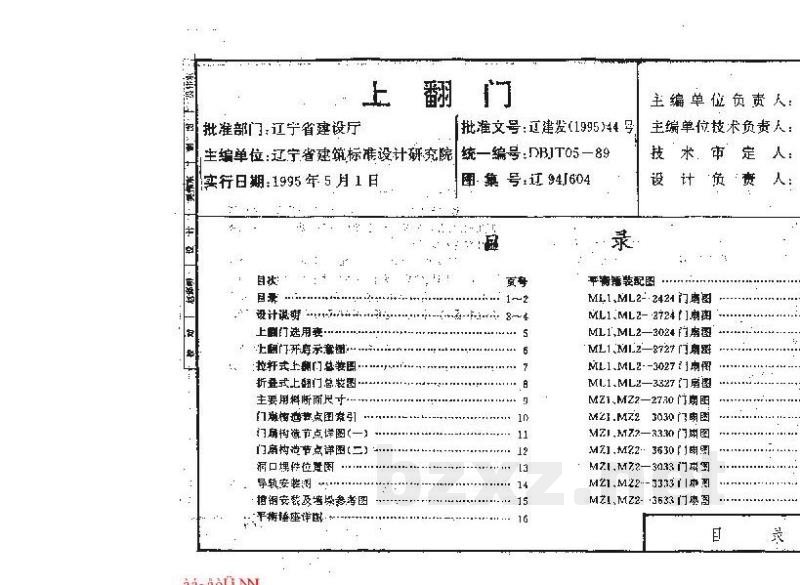 上翻门
批准部门:辽宁省建设厅
主编单位:辽宁省建筑标准设计研究院
实行日期:1995年5月1日
批准文号:辽建发(1995)44号
统一编号:DBJT05-89
图集号:辽94J604
主编单位负责人:
主编单位技术负责人:
技术审定人:
设计负责人:
目录
目次 页号
目录 1~2
设计说明 3~4
上翻门选用表 5
上翻门开启示意图 6
拉杆式上翻门总装图 7
折叠式上翻门总装图 8
主要用料断面尺寸 9
门扇构造节点图索引 10
门扇构造节点详图(一) 11
门扇构造节点详图(二) 12
洞口埋件位置图 13
导轨安装图 14
槽钢安装及墙垛参考图 15
平衡锤座详图 16
平衡锤装配图
ML1、ML2-2424门扇图
ML1、ML2-2724门扇图
ML1、ML2-3024门扇图
ML1、ML2-2727门扇图
ML1、ML2-3027门扇图
ML1、ML2-3327门扇图
MZ1、MZ2-2730门扇图
MZ1、MZ2-3030门扇图
MZ1、MZ2-3330门扇图
MZ1、MZ2-3630门扇图
MZ1、MZ2-3033门扇图
MZ1、MZ2-3333门扇图
MZ1、MZ2-3633门扇图
目录